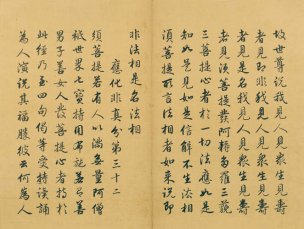 故世尊說我見人見眾生見壽
者見即非我見人見眾生見壽
者見是名我見人見眾生見壽
者見須菩提發阿耨多羅三藐
三菩提心者於一切法應如是
知如是見如是信解不生法相
須菩提所言法相者如來說即
非法相是名法相
應化非真分第三十二
須菩提若有人以滿無量阿僧
祇世界七寶持用布施若有善
男子善女人發菩提心者持於
此經乃至四句偈等受持讀誦
為人演說其福勝彼云何為人